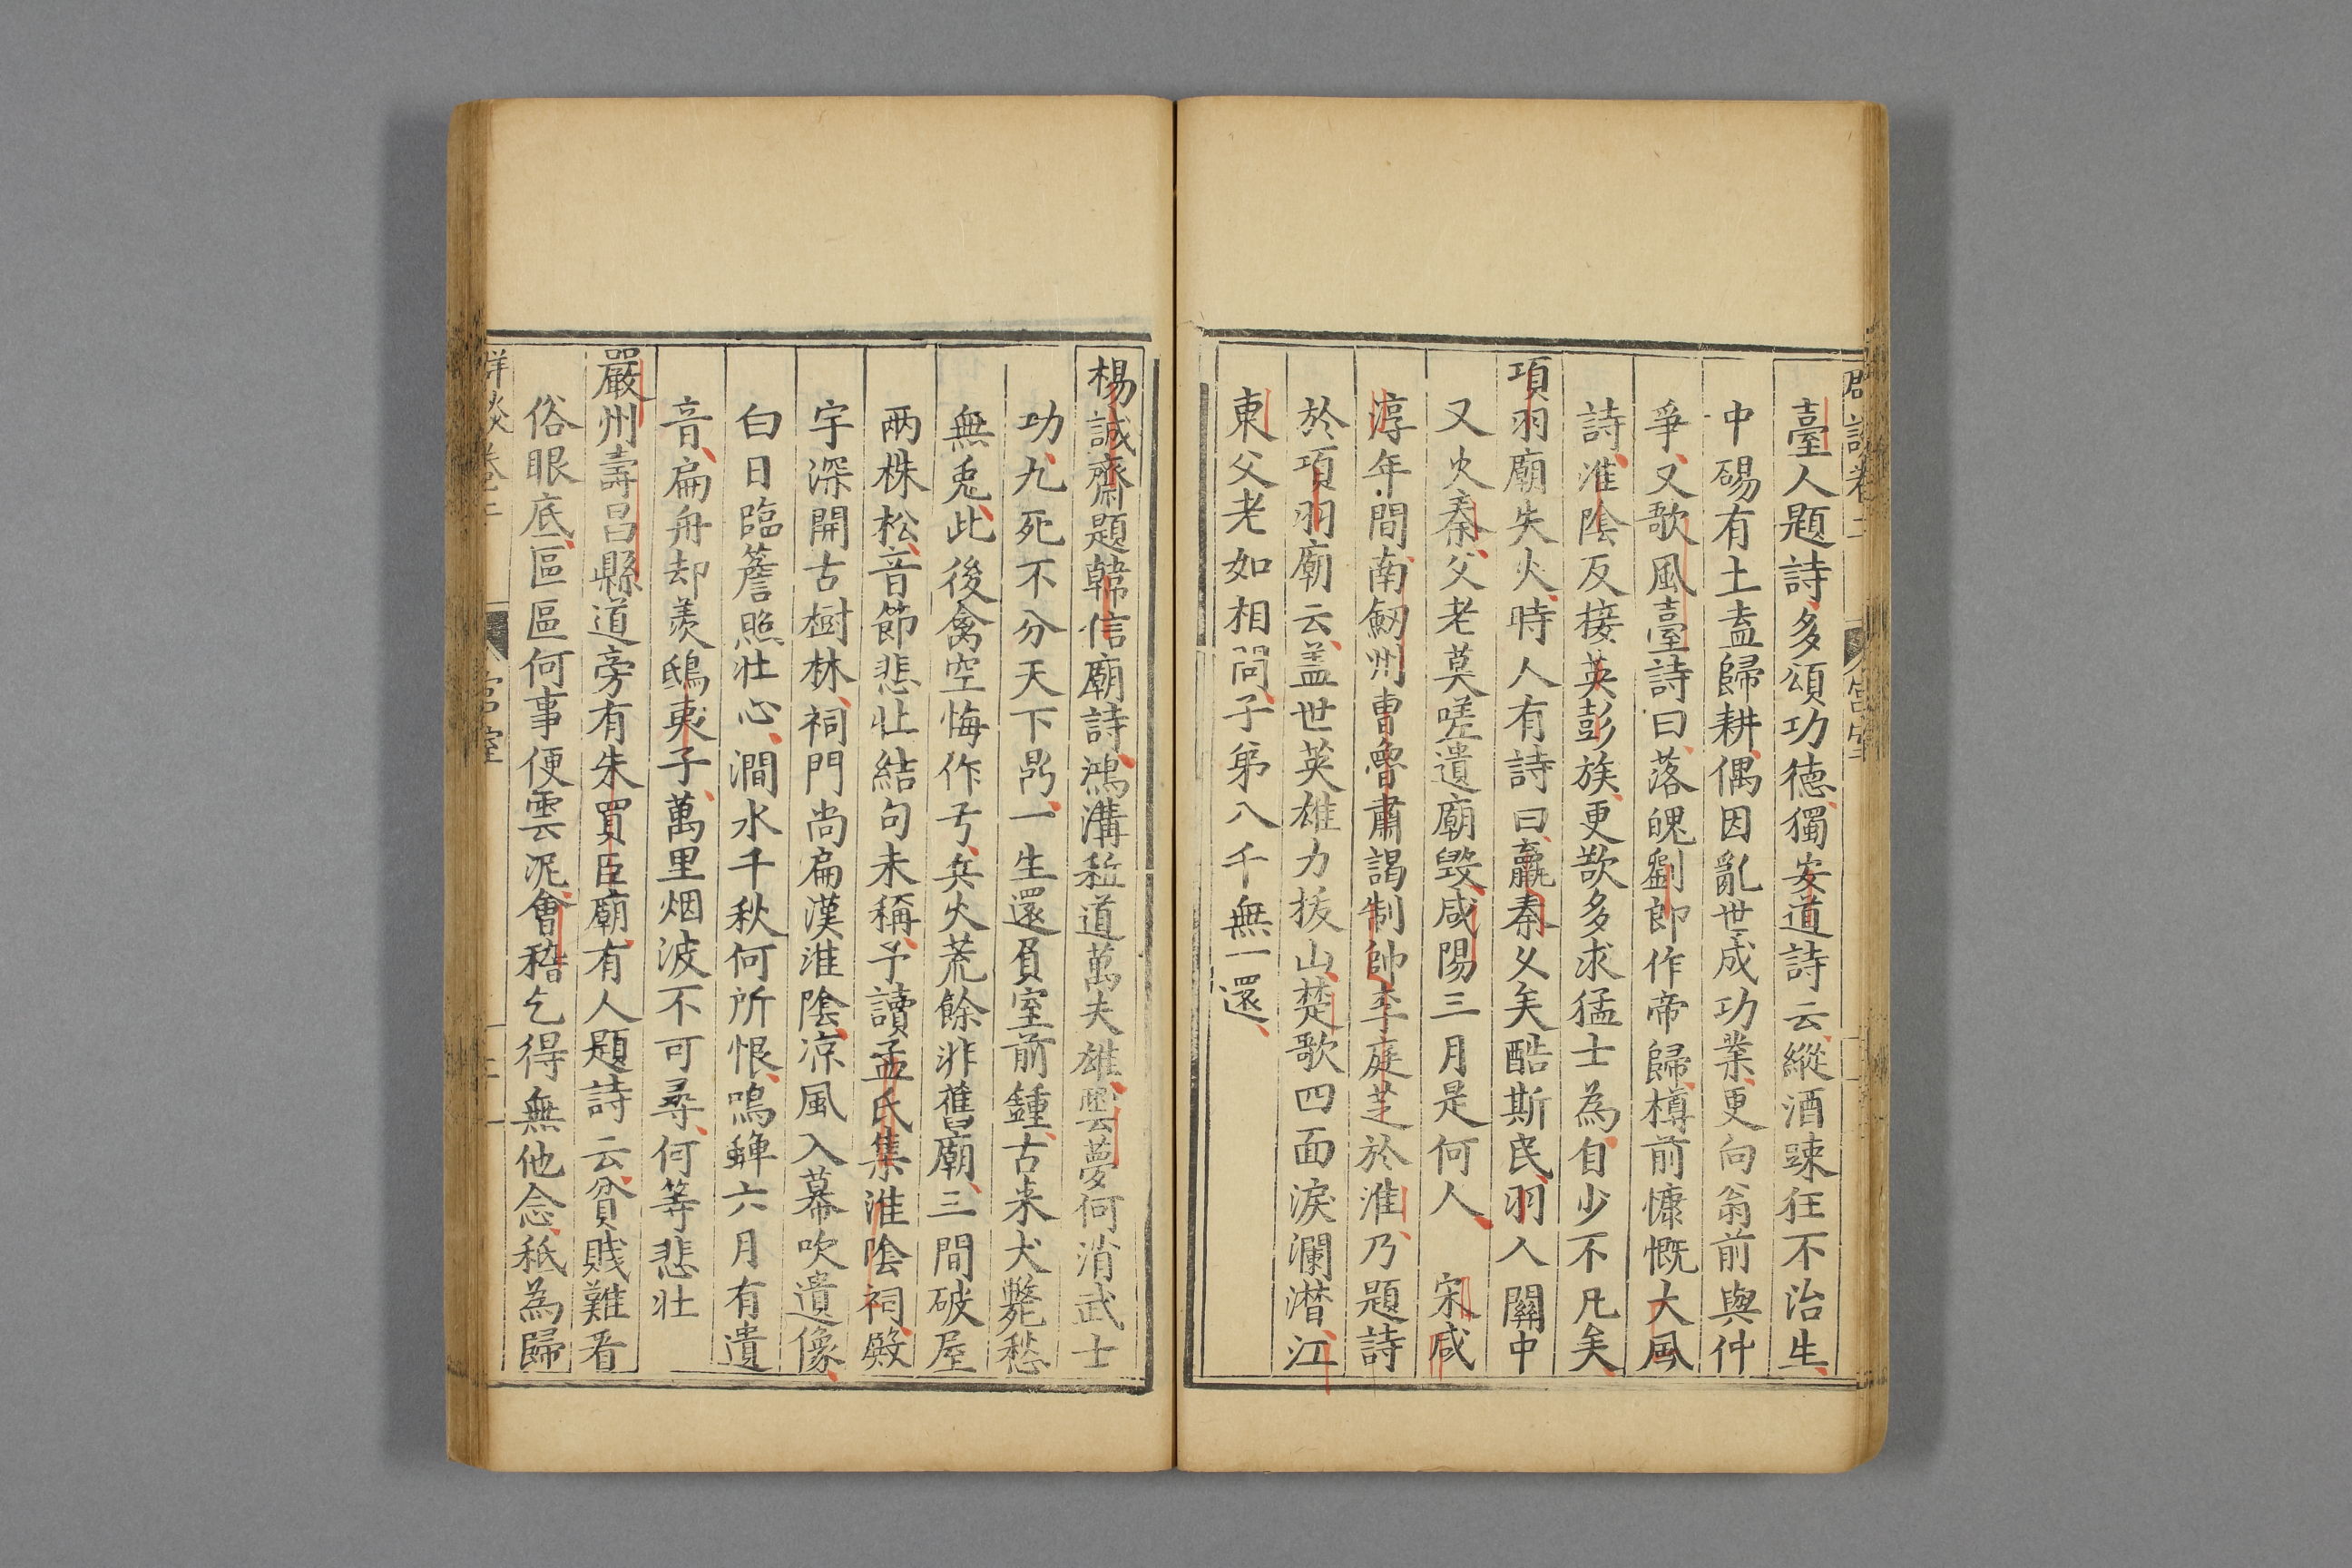 臺人題詩多頌功德獨安道詩云縱酒踈狂不治生
中碭有土盍歸耕偶因亂世成功業更向翁前與仲
爭又歌風臺詩曰落魄劉郎作帝歸樽前慷慨大風
詩淮陰反接英彭族更歎多求猛士為自少不凡矣
項羽廟失火時人有詩曰嬴秦乆矣酷斯民羽入關中
又火秦父老莫嗟遺廟毀咸陽三月是何人 宋咸
淳年間南劒州曹魯肅謁制帥李庭芝於淮乃題詩
於項羽廟云盖世英雄力拔山楚歌四面淚瀾潸江
東父老如相問子弟八千無一還
楊誠齋題韓信廟詩鴻溝秪道萬夫雄雲夢何消武士
功九死不分天下鼎一生還負室前鍾古来犬斃愁
無兎此後禽空悔作弓兵火荒餘非舊廟三間破屋
两株松音節悲壯結句未稱予讀孟氏集淮陰祠殿
宇深開古樹林祠門尚扁漢淮陰凉風入幕吹遺像
白日臨簷照壯心澗水千秋何所恨鳴蟬六月有遺
音扁舟却羨鴟夷子萬里烟波不可尋何等悲壯
嚴州壽昌縣道旁有朱買臣廟有人題詩云貧賤難看
俗眼底區區何事便雲泥會稽乞得無他念秪為歸